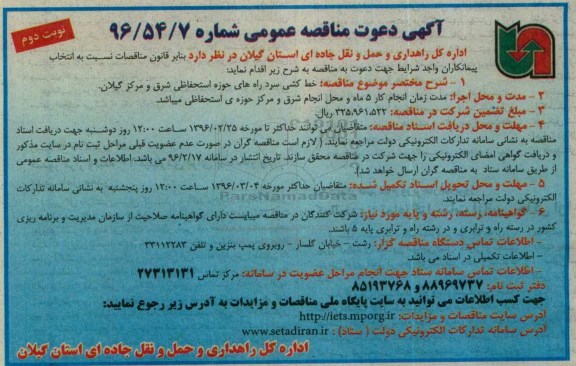 آگهی دعوت مناقصه عمومی شماره ۹۶/۵۴/۷
نوبت دوم
اداره کل راهداری و حمل و نقل جاده ای استان گیلان در نظر دارد بنابر قانون مناقصات نسبت به انتخاب
پیمانکاران واجد شرایط جهت دعوت به مناقصه به شرح زیر اقدام نماید:
۱ - شرح مختصر موضوع مناقصه: خط کشی سرد راه های حوزه استحفاظی شرق و مرکز گیلان.
۲ - مدت و محل اجرا: مدت زمان انجام کار ۵ ماه و محل انجام شرق و مرکز حوزه ی استحفاظی میباشد.
۳ - مبلغ تضمین شرکت در مناقصه: ۳۳۵،۹۶۱،۵۲۲ ریال
۴ - مهلت و محل دریافت اسناد مناقصه: متقاضیان می توانند حداکثر تا مورخه ۱۳۹۶/۰۲/۲۵ ساعت ۱۲:۰۰ روز دوشنبه جهت دریافت اسناد
مناقصه به نشانی سامانه تدارکات الکترونیکی دولت مراجعه نمایند. ( لازم است مناقصه گران در صورت عدم عضویت قبلی مراحل ثبت نام در سایت مذکور
و دریافت گواهی امضای الکترونیکی را جهت شرکت در مناقصه محقق سازند. تاریخ انتشار در سامانه ۹۶/۲/۱۷ می باشد. اطلاعات و اسناد مناقصه عمومی
از طریق سامانه ستاد به مناقصه گران ارسال خواهد شد.)
۵ - مهلت و محل تحویل اسناد تکمیل شده: متقاضیان حداکثر مورخه ۱۳۹۶/۰۳/۰۴ ساعت ۱۲:۰۰ روز پنجشنبه به نشانی سامانه تدارکات
الکترونیکی دولت مراجعه نمایند.
۶ - گواهینامه، رسته، رشته و پایه مورد نیاز: شرکت کنندگان در مناقصه میبایست دارای گواهینامه صلاحیت از سازمان مدیریت و برنامه ریزی
کشور در رسته راه و ترابری و در رشته راه و ترابری پایه ۵ باشند.
- اطلاعات تماس دستگاه مناقصه گزار: رشت - خیابان گلسار - روبروی پمپ بنزین و تلفن ۳۳۱۱۲۲۸۳
- اطلاعات تکمیلی در اسناد می باشد.
- اطلاعات تماس سامانه ستاد جهت انجام مراحل عضویت در سامانه: مرکز تماس ۲۷۳۱۳۱۳۱
دفتر ثبت نام: ۸۸۹۶۹۷۳۷ و ۸۵۱۹۳۷۶۸
جهت کسب اطلاعات می توانید به سایت پایگاه ملی مناقصات و مزایدات به آدرس زیر رجوع نمایید:
آدرس سایت مناقصات و مزایدات: http://iets.mporg.ir
آدرس سامانه تدارکات الکترونیکی دولت ( ستاد ) : www.setadiran.ir
اداره کل راهداری و حمل و نقل جاده ای استان گیلان
ParsNamadData